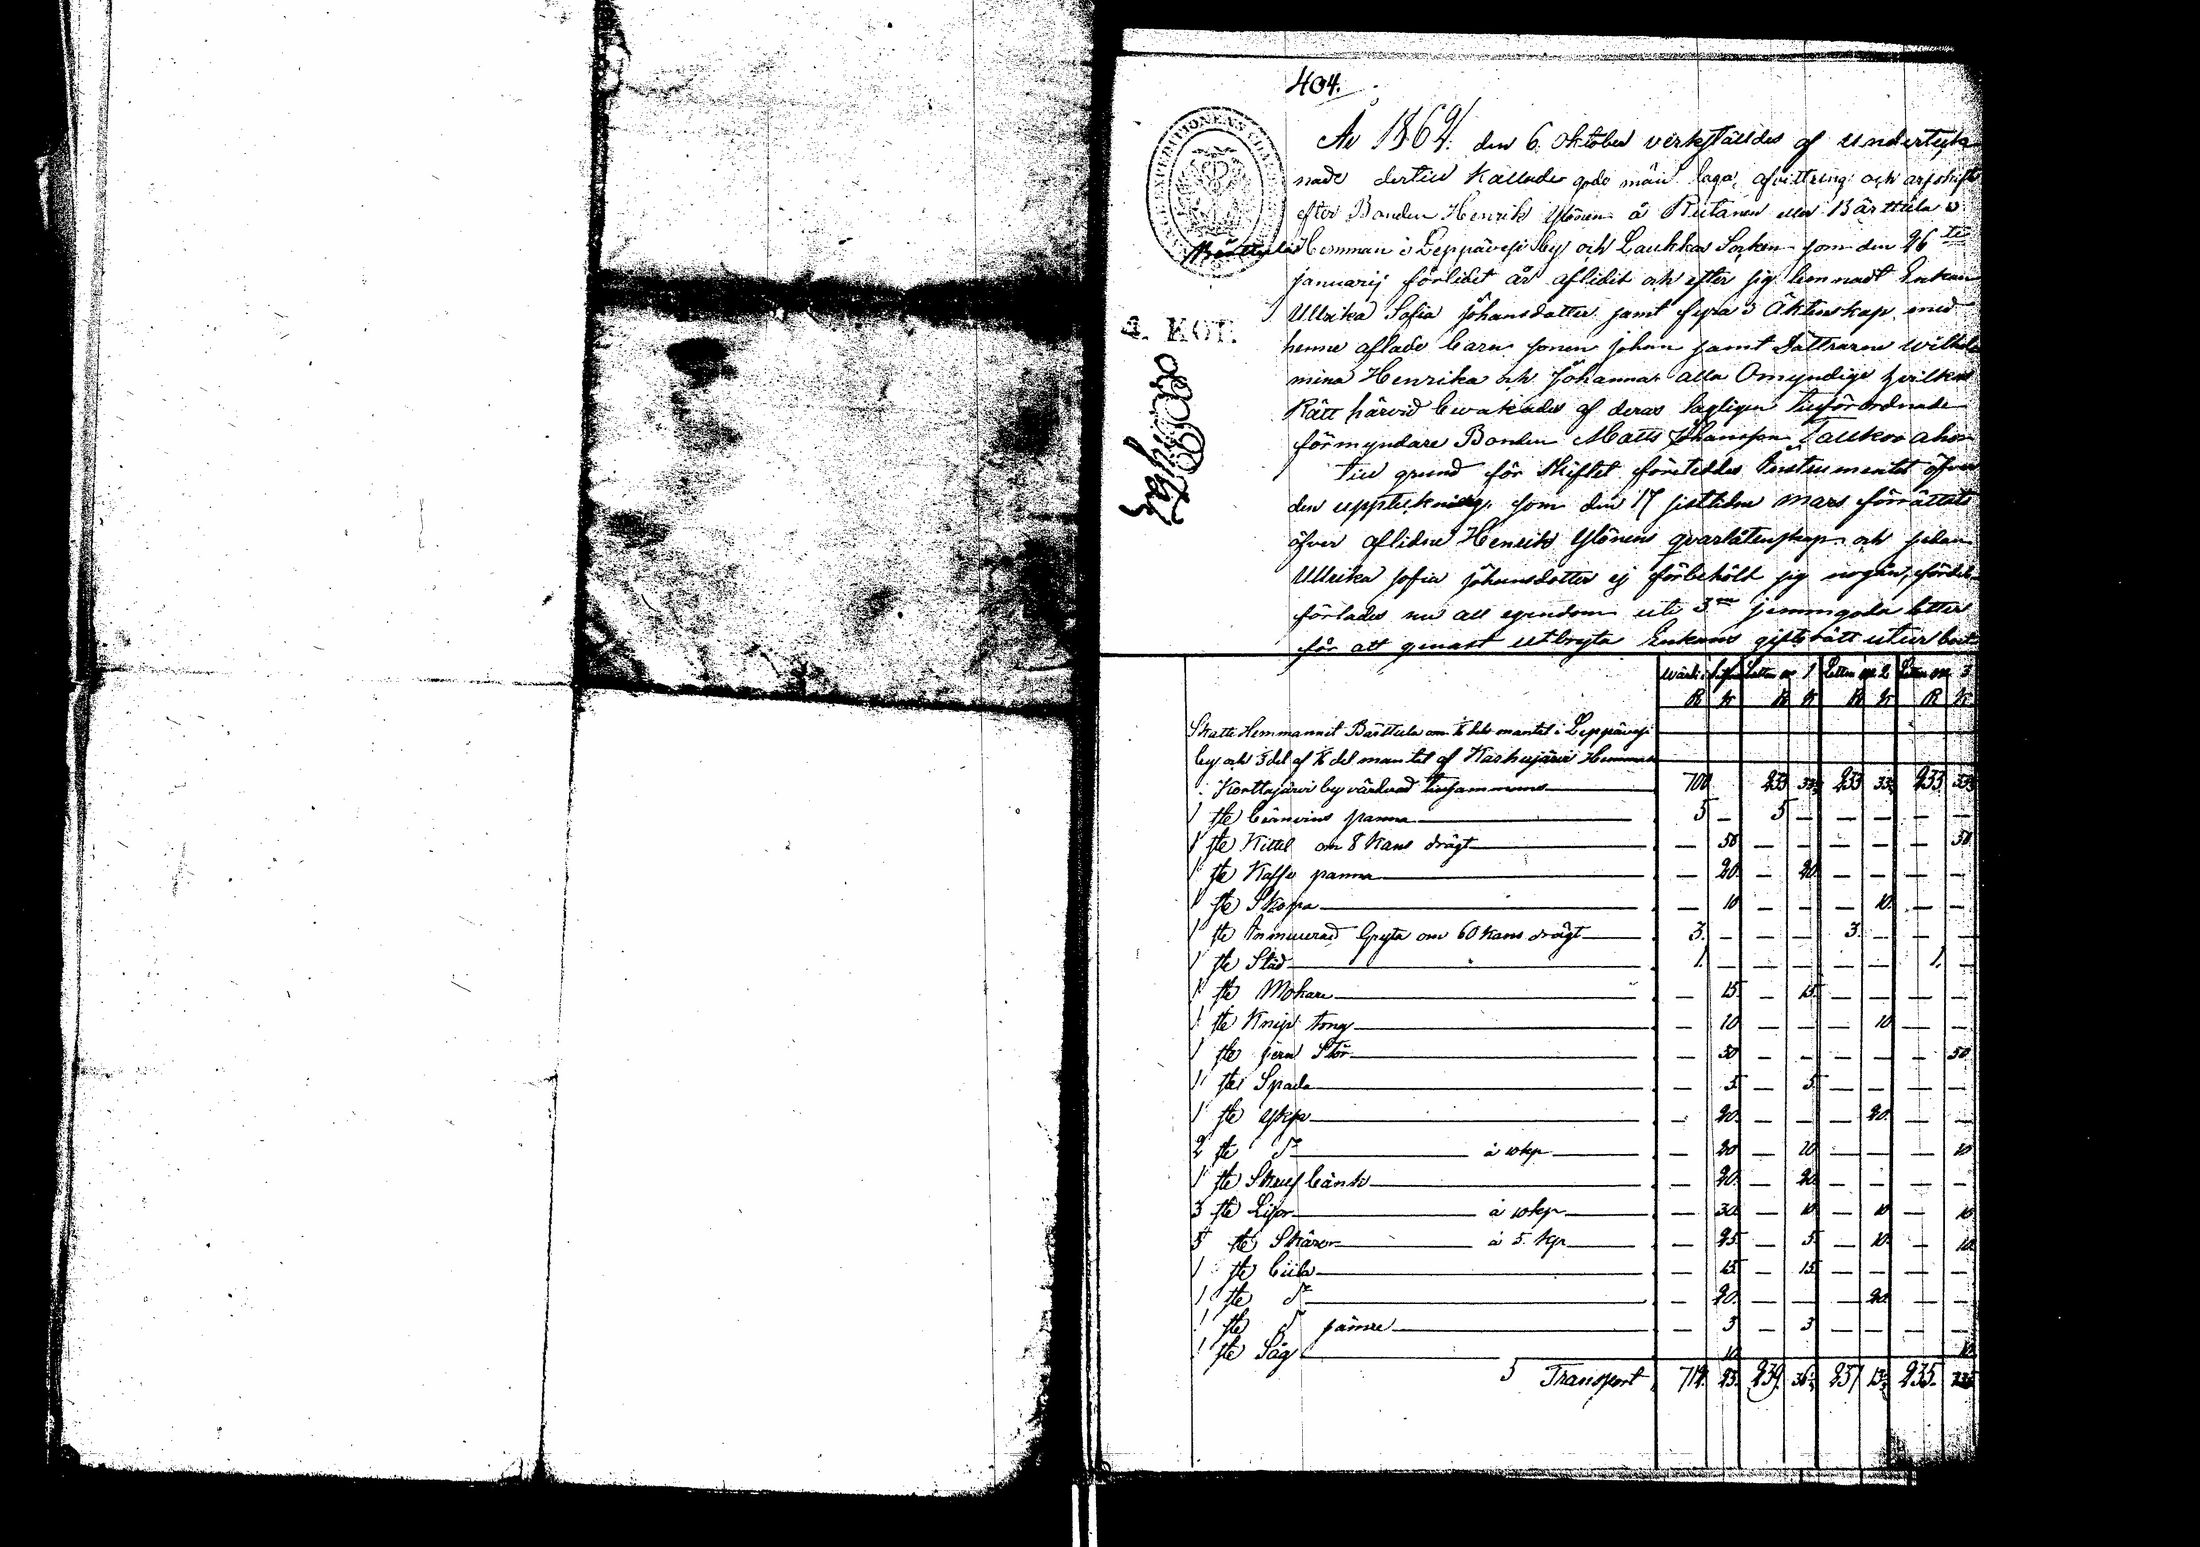 404.
År 1864 den 6 Oktober verkställdes af undertek
nade dertill kallade gode män laga afvittring och arfskifte
efter Bonden Henrik Ylönen å Riitanen eller Bärttila
Hemman i Leppävesi by och Laukkas Socken som den 26te
Bärttila
januarij förlidet år aflidit och efter sig lemnadt Enkan
Ullrika Sofia Johansdotter samt fyra i Äktenskap med
4. KOP.
henne aflade barn sonen Johan samt Döttrarne Wilhel
mina Henrika och Johanna alla Omyndige hvilkas
Rätt härvid bevakades af deras lagligen tillförordnade
förmyndare Bonden Matts Johansson
Till grund för skiftet företeddes Instrumentet öfver
den uppteckning som den 17 sistliden Mars förrättats
öfver aflidne Henrik Ylönens qvarlåtenskap och sedan
Ullrika Sofia Johansdotter ej förbehöld sig någon fördel
förlades nu all egendom uti 3ne jemngoda lotter
för att genast utbryta Enkans giftorätt utur boet
Lotten No 1 Lotten No 2 Lotten No 3
R K R K R K R K
Skatte Hemmanet Bärttila om dels mantal i Leppävesi
by och 1/3 del af del mantal af Hemman
i Korttajärvi by värderad tillsammans 700 233 33 1/3 233 33 1/3 233 33 1/3
1 ste brännvins panna 5 – 5 – – – – –
1 ste Kittel om 8 Kans drägt – 50 – – – – – 50
1 ste Kaffe panna – 20 – 20 – – – –
1 ste Skopa – 10 – – – 10 – –
1 ste Inmurad Gryta om 60 Kans drägt 3 – – – 3 – – –
1 ste Städ 1 – – – – – 1 –
1 ste – 15 – 15 – – – –
1 ste Knip tong – 10 – – – 10 – –
1 ste jern Stör – 50 – – – – – 50
1 ste Spada – 5 – 5 – – – –
1 ste yxa – 20 – – – 20 – –
2 ste do à 10 kp – 20 – 10 – – – 10
1 ste Skruf bänk – 20 – 20 – – – –
3 ste Liar à 10 kp – 30 – 10 – 10 – 10
5 ste Skäror à 5 kp – 25 – 5 – 10 – 10
1 ste bila – 15 – 15 – – – –
1 ste do – 20 – – – 20 – –
1 ste do sämre – 3 – 3 – – – –
1 ste Såg 10 10
Transport 712 23 239 36 1/3 237 13 1/3 235